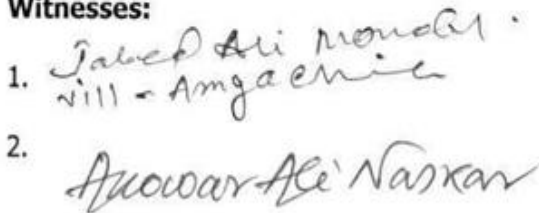 Witnesses:
1. Jabed Ali Mondal.
vill - Amgachia
2.
Anowar Ali Naskar